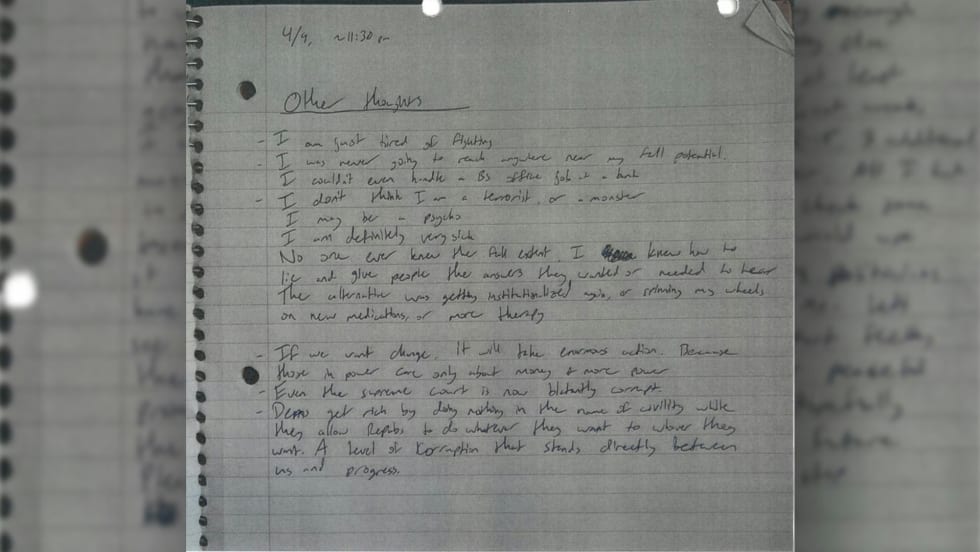 4/9, ~11:30 pm
Other thoughts
- I am just tired of fighting
- I was never going to reach anywhere near my full potential.
I couldn't even handle a BS office job at a bank
- I don't think I am a terrorist, or a monster
I may be a psycho
I am definitely very sick
No one ever knew the full extent. I knew how to
lie and give people the answers they wanted or needed to hear
The alternative was getting institutionalized again, or spinning my wheels
on new medications, or more therapy
- If we want change, It will take enormous action. Because
those in power care only about money & more power
- Even the supreme court is now blatantly corrupt
- Dems get rich by doing nothing in the name of civility while
they allow Repubs to do whatever they want to whover they
want. A level of Korruption that stands directly between
us and progress.